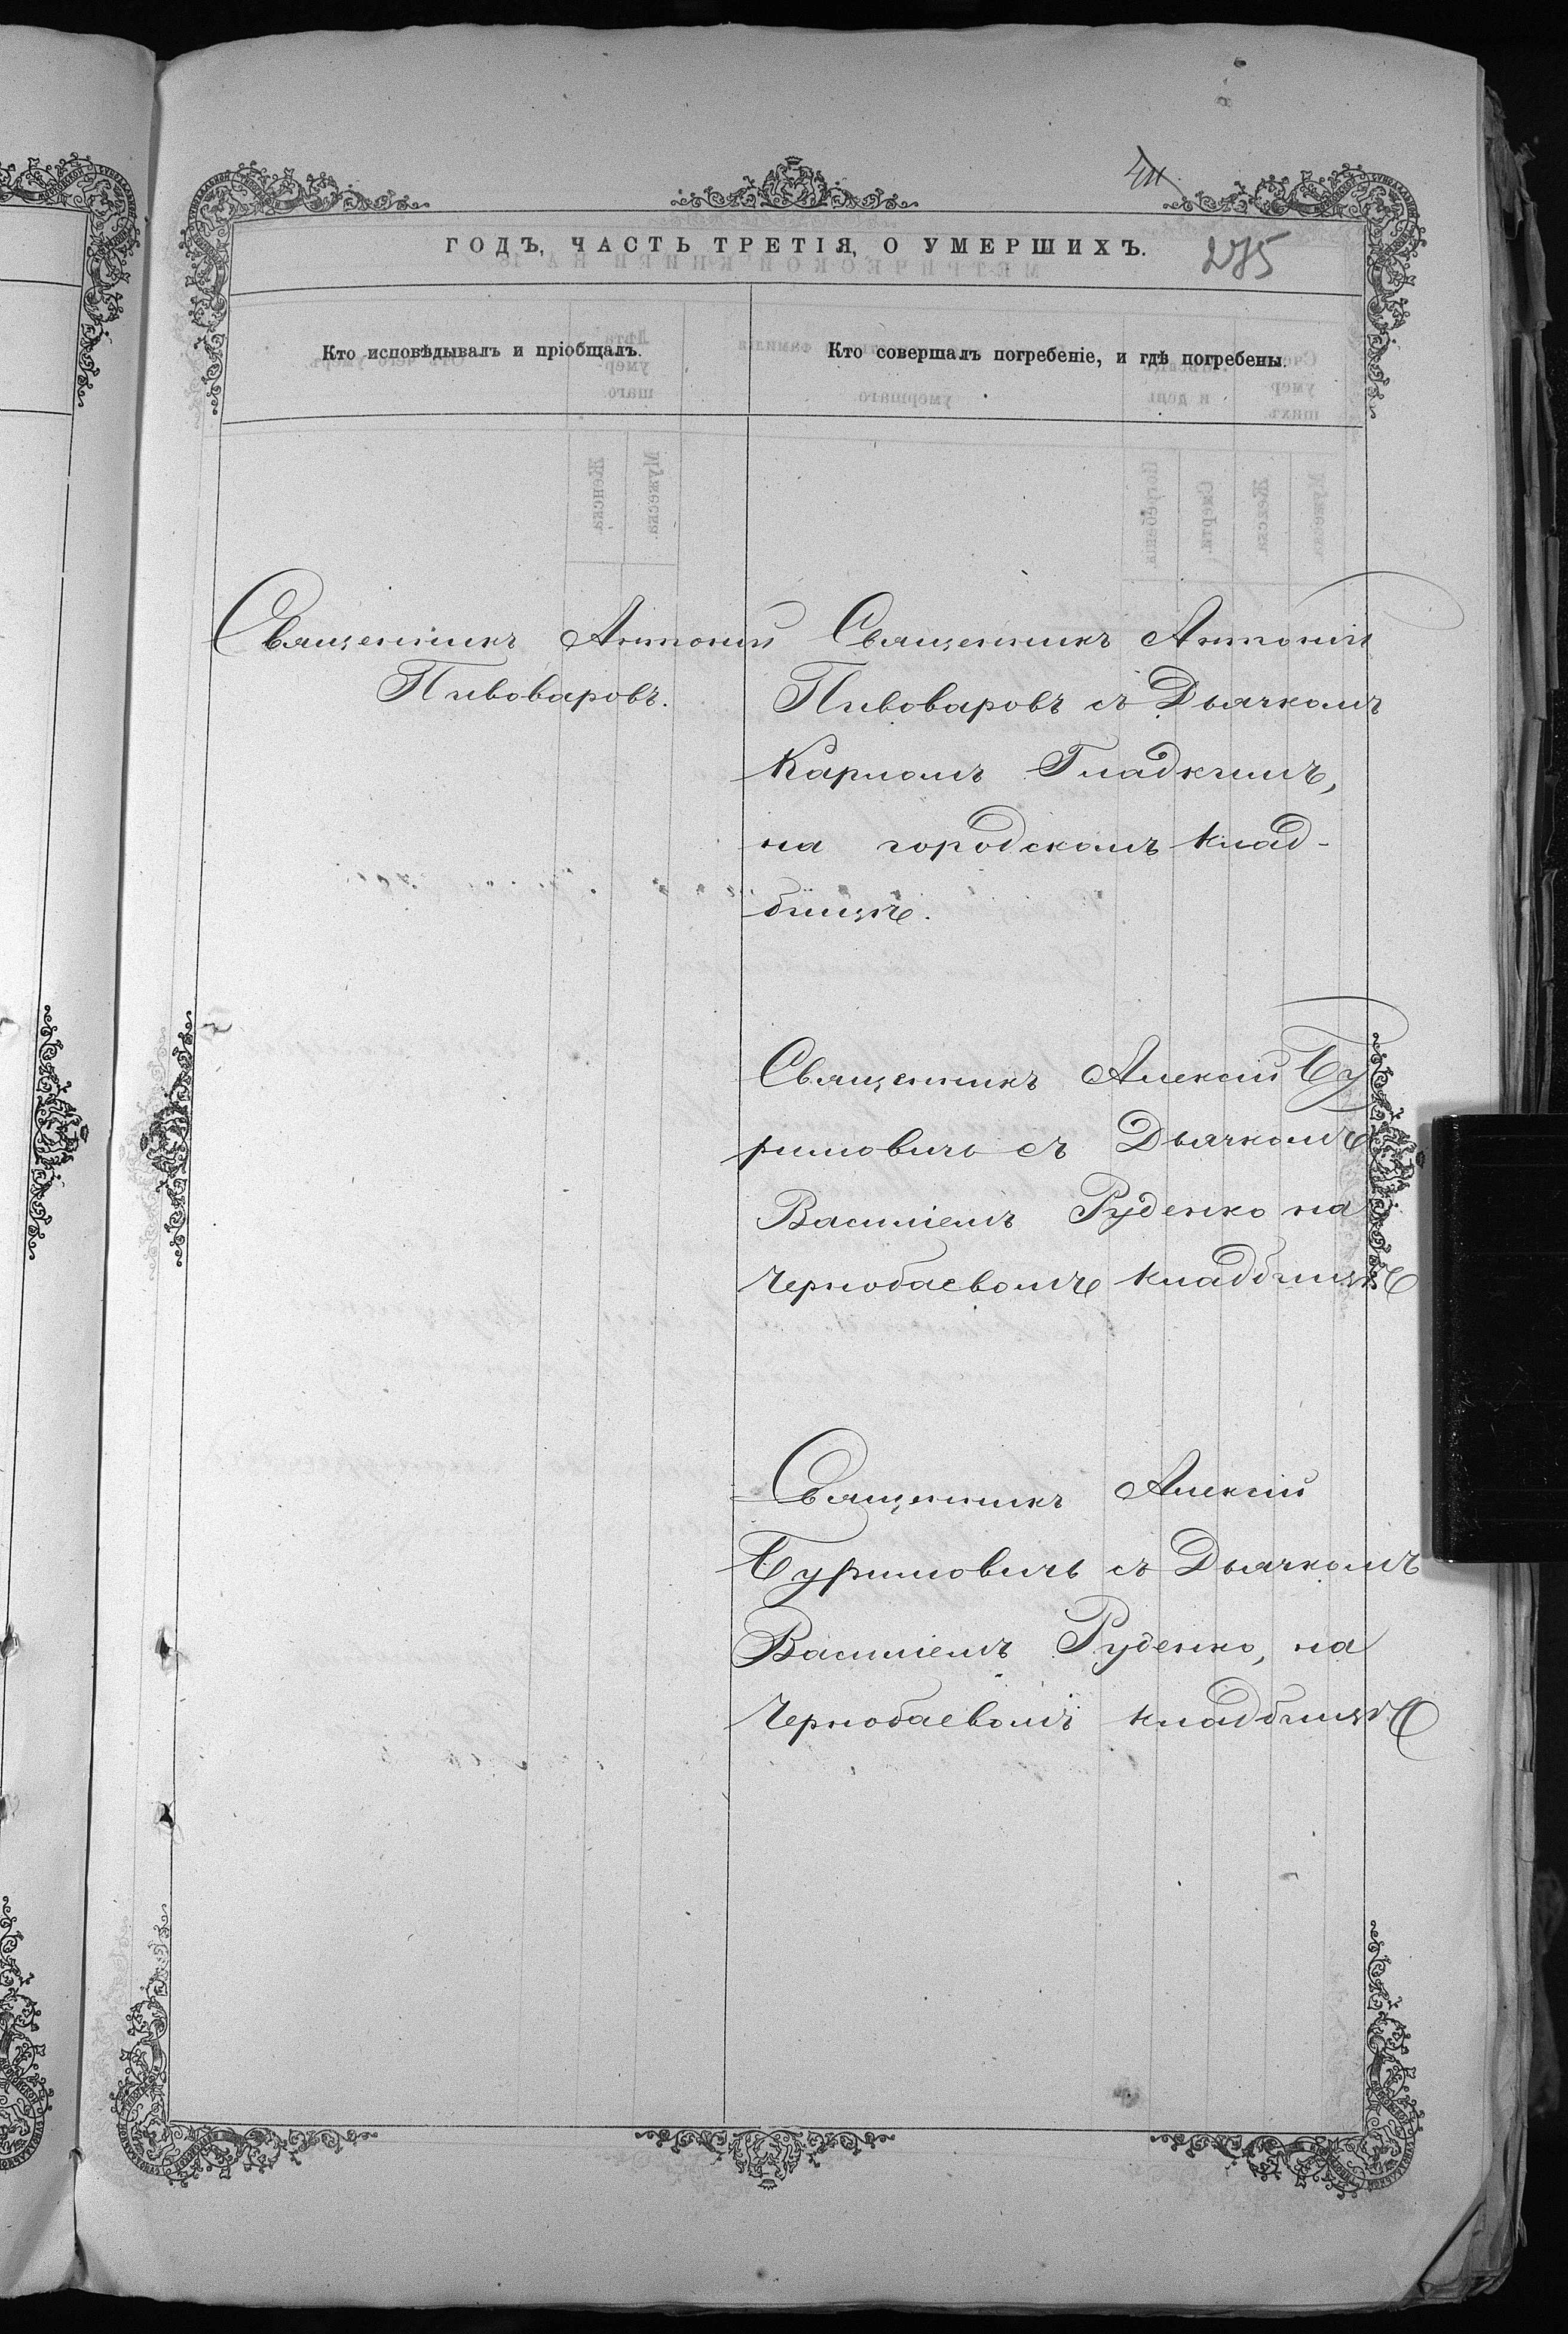 ГОДЪ, ЧАСТЬ ТРЕТІЯ, О УМЕРШИХЪ.
275
Кто исповѣдывалъ и пріобщалъ.
Кто совершалъ погребеніе, и гдѣ погребены.
Священникъ Антоній
Пивоваровъ.
Священникъ Антоній
Пивоваровъ съ Дьячкомъ
Карпомъ Гладкимъ,
на городскомъ клад-
бищѣ.
Священникъ Алексій Бу
римовичъ съ Дьячкомъ
Василіемъ Руденко на
Чернобаевомъ кладбищѣ
Священникъ Алексій
Буримовичъ съ Дьячкомъ
Василіемъ Руденко, на
Чернобаевомъ кладбищѣ